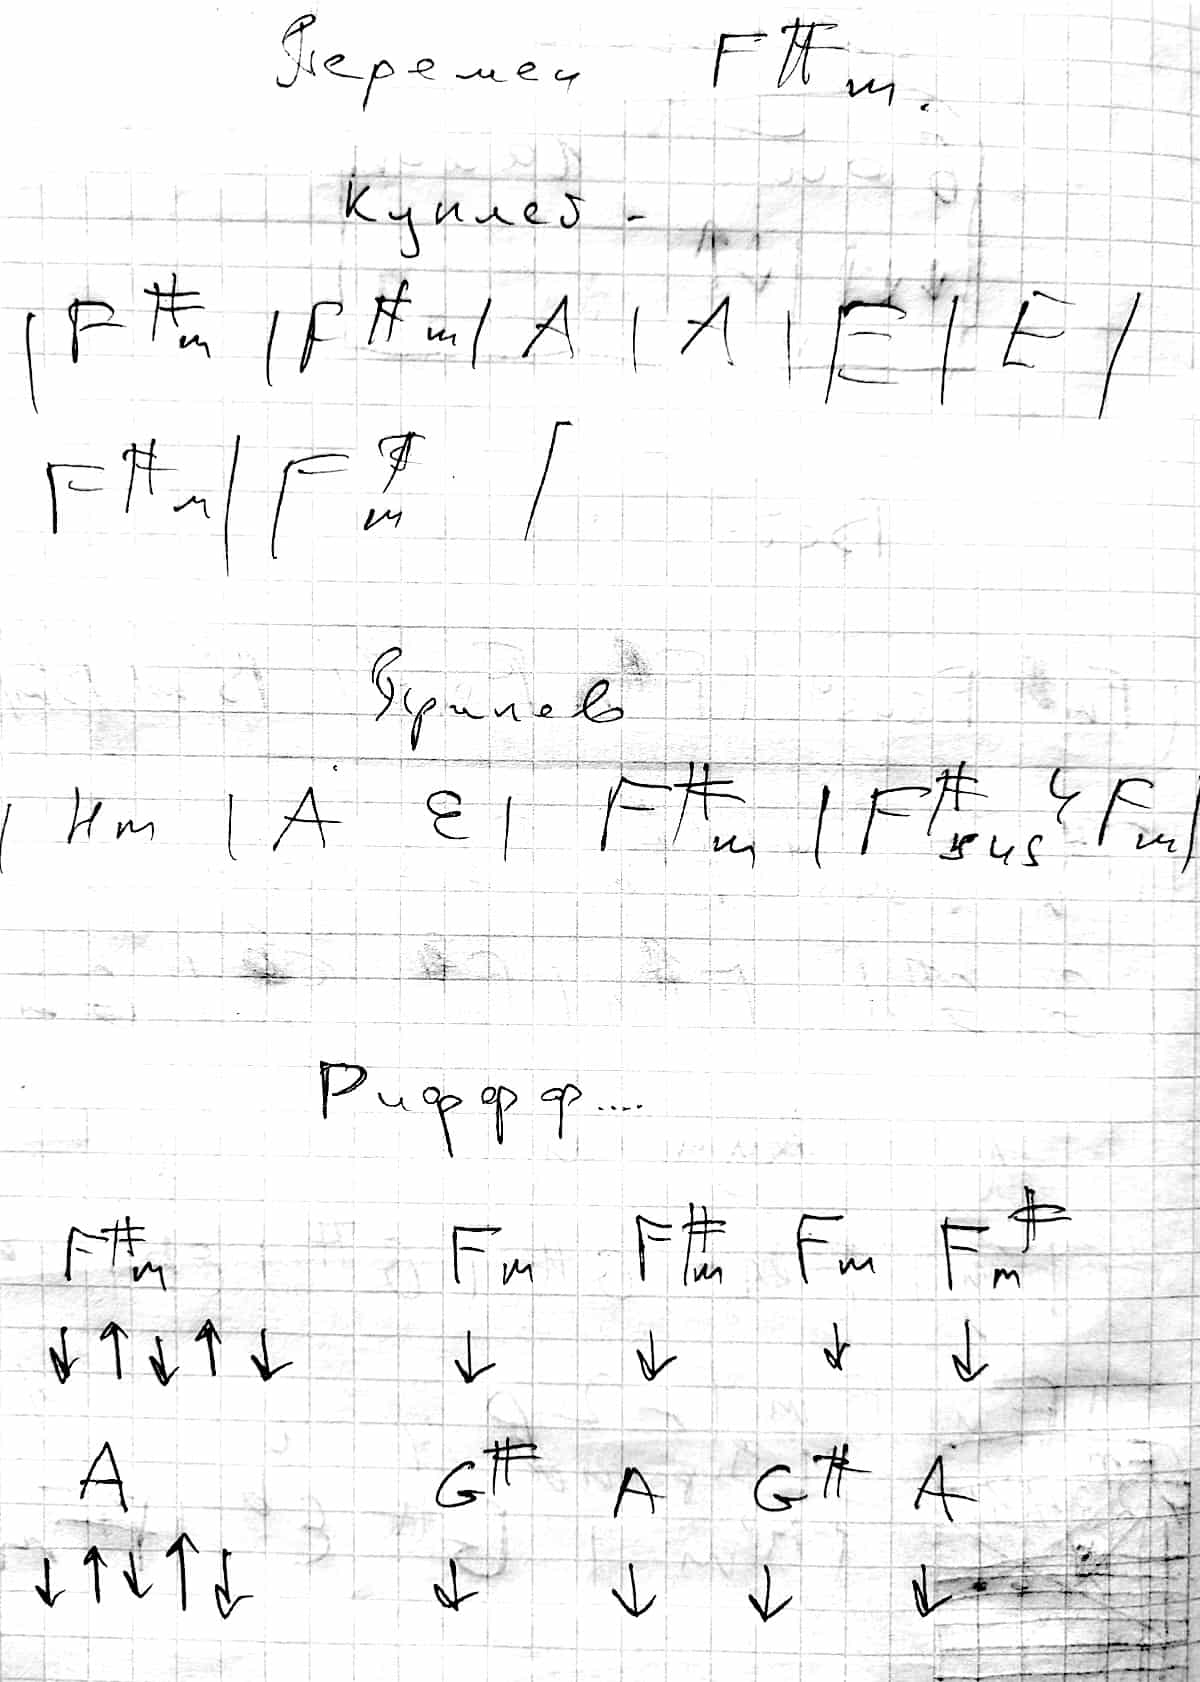 Перемен F#m.
Куплет -
| F#m | F#m | A | A | E | E |
F#m | F#m |
Припев
| Hm | A E | F#m | F#sus4 Fm |
Риффф....
F#m Fm F#m Fm F#m
↓ ↑ ↓ ↑ ↓ ↓ ↓ ↓ ↓
A G# A G# A
↓ ↑ ↓ ↑ ↓ ↓ ↓ ↓ ↓